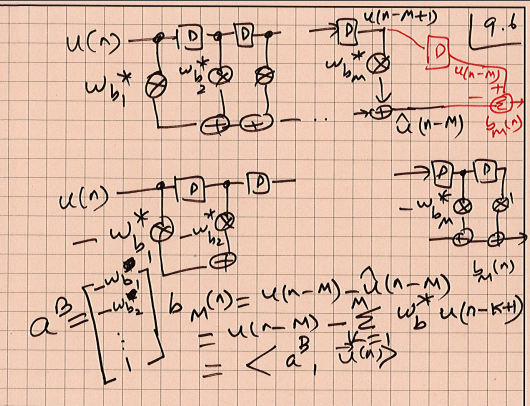 9.6
u(n) D D D u(n-M+1)
D
w_b1^* w_b2^* w_bM^* u(n-M)
+
Σ
û(n-M) b_M(n)
u(n) D D D D
-w_b1^* -w_b2^* -w_bM^* 1
b_M(n)
a^B = [-w_b1^* -w_b2^* ⋮ 1]
b_M(n) = u(n-M) - û(n-M)
= u(n-M) - Σ_{k=1}^{M} w_b^* u(n-k+1)
= < a^B, u(n) >